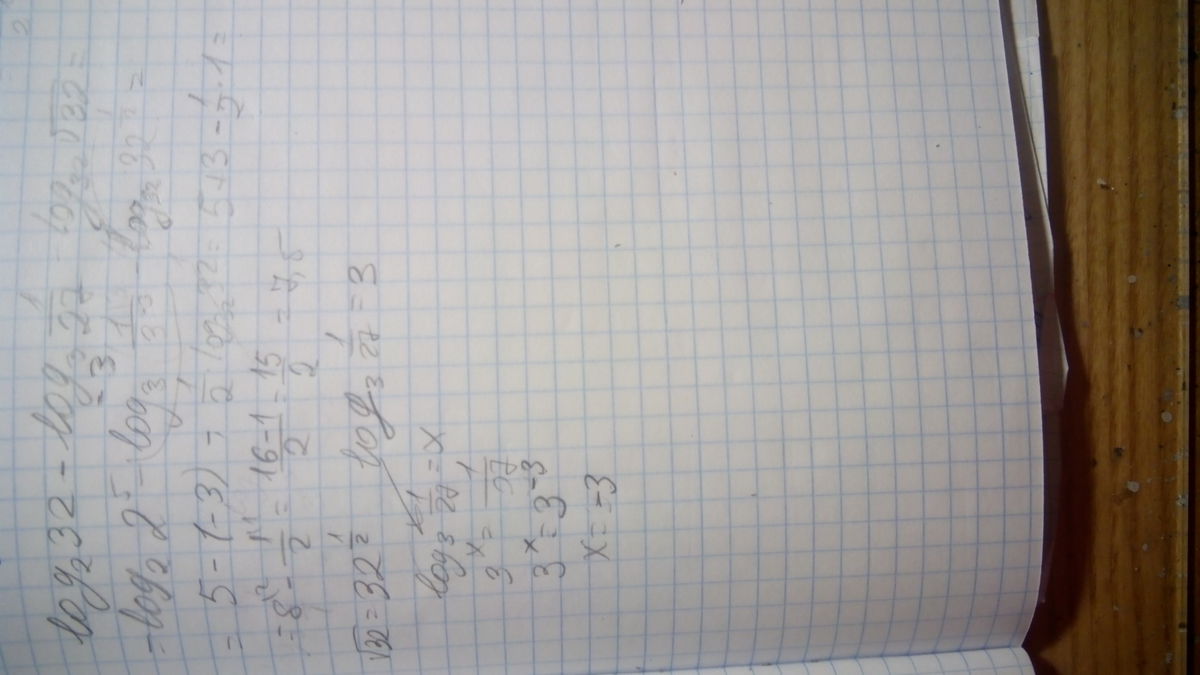 log₂32 - log₃ 1/27 - log₃₂ √32 =
= log₂ 2⁵ - log₃ 1/3³ - log₃₂ 32^(1/2) =
= 5 - (-3) - 1/2 · log₃₂ 32 = 5 + 3 - 1/2 · 1 =
= 8 - 1/2 = (16-1)/2 = 15/2 = 7,5
√32 = 32^(1/2) log₃ 1/27 = 3
log₃ 1/27 = x
3ˣ = 1/27
3ˣ = 3⁻³
x = -3